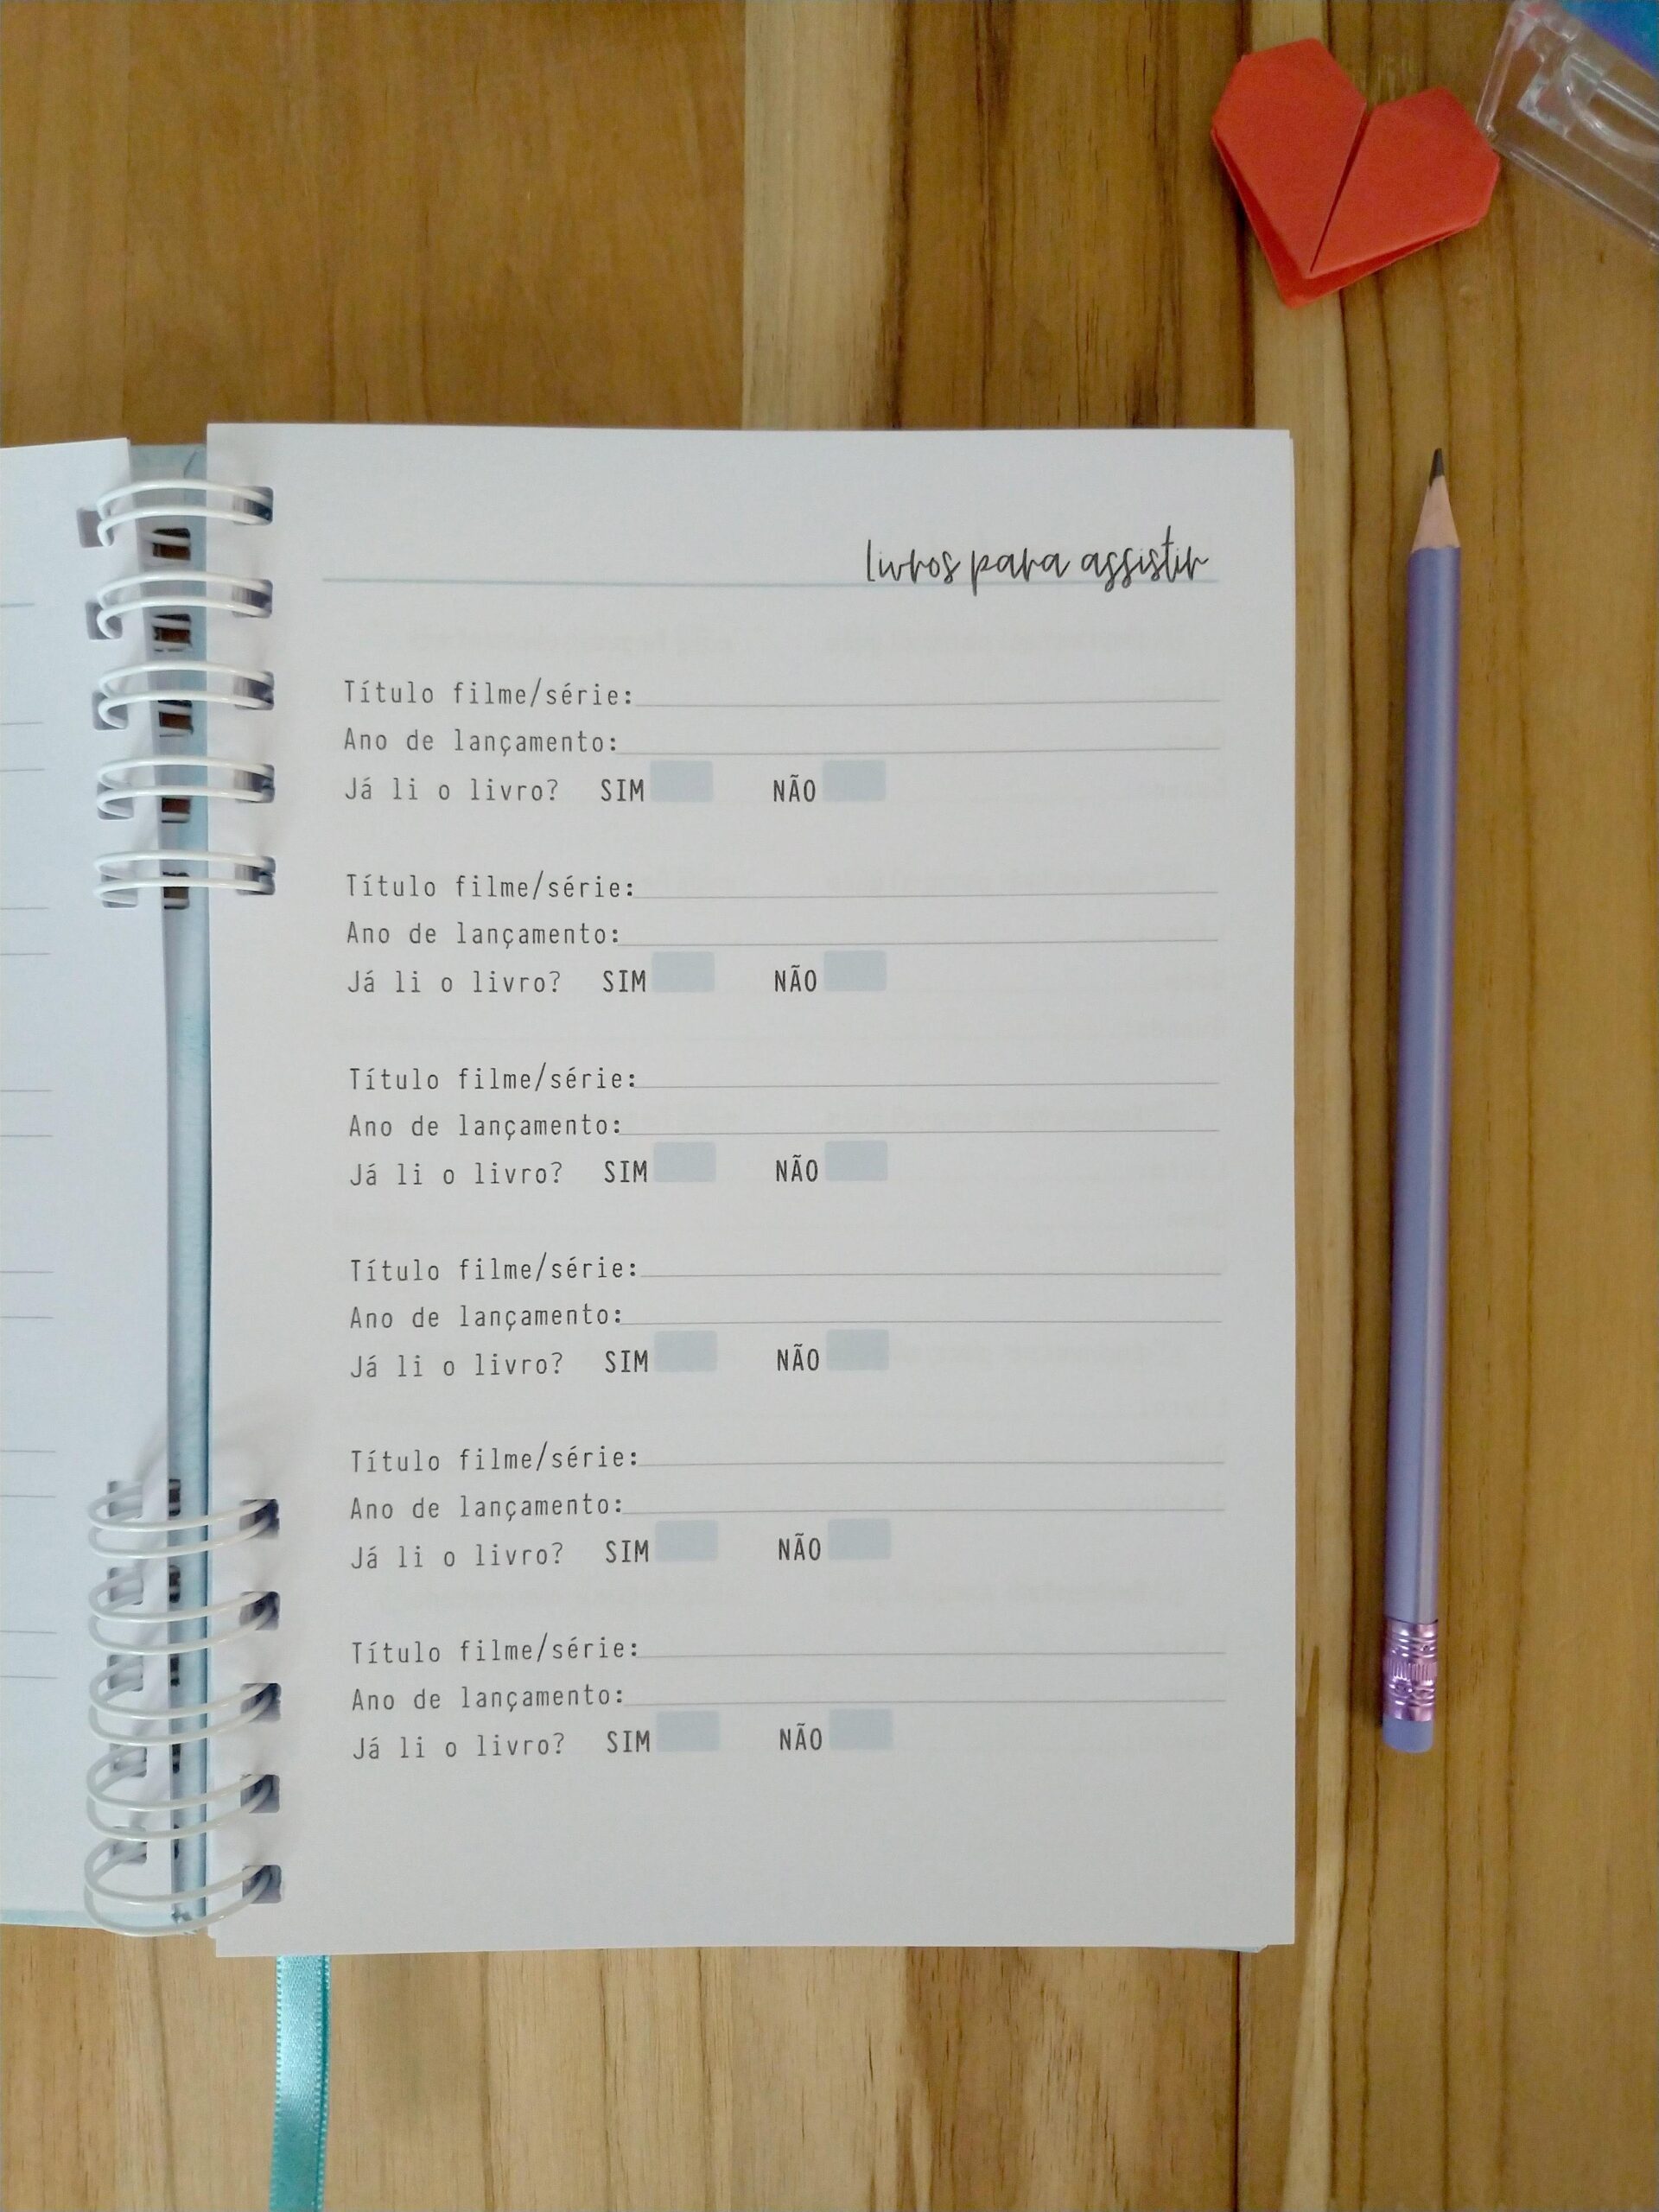 livros para assistir
Título filme/série:
Ano de lançamento:
Já li o livro? SIM NÃO
Título filme/série:
Ano de lançamento:
Já li o livro? SIM NÃO
Título filme/série:
Ano de lançamento:
Já li o livro? SIM NÃO
Título filme/série:
Ano de lançamento:
Já li o livro? SIM NÃO
Título filme/série:
Ano de lançamento:
Já li o livro? SIM NÃO
Título filme/série:
Ano de lançamento:
Já li o livro? SIM NÃO